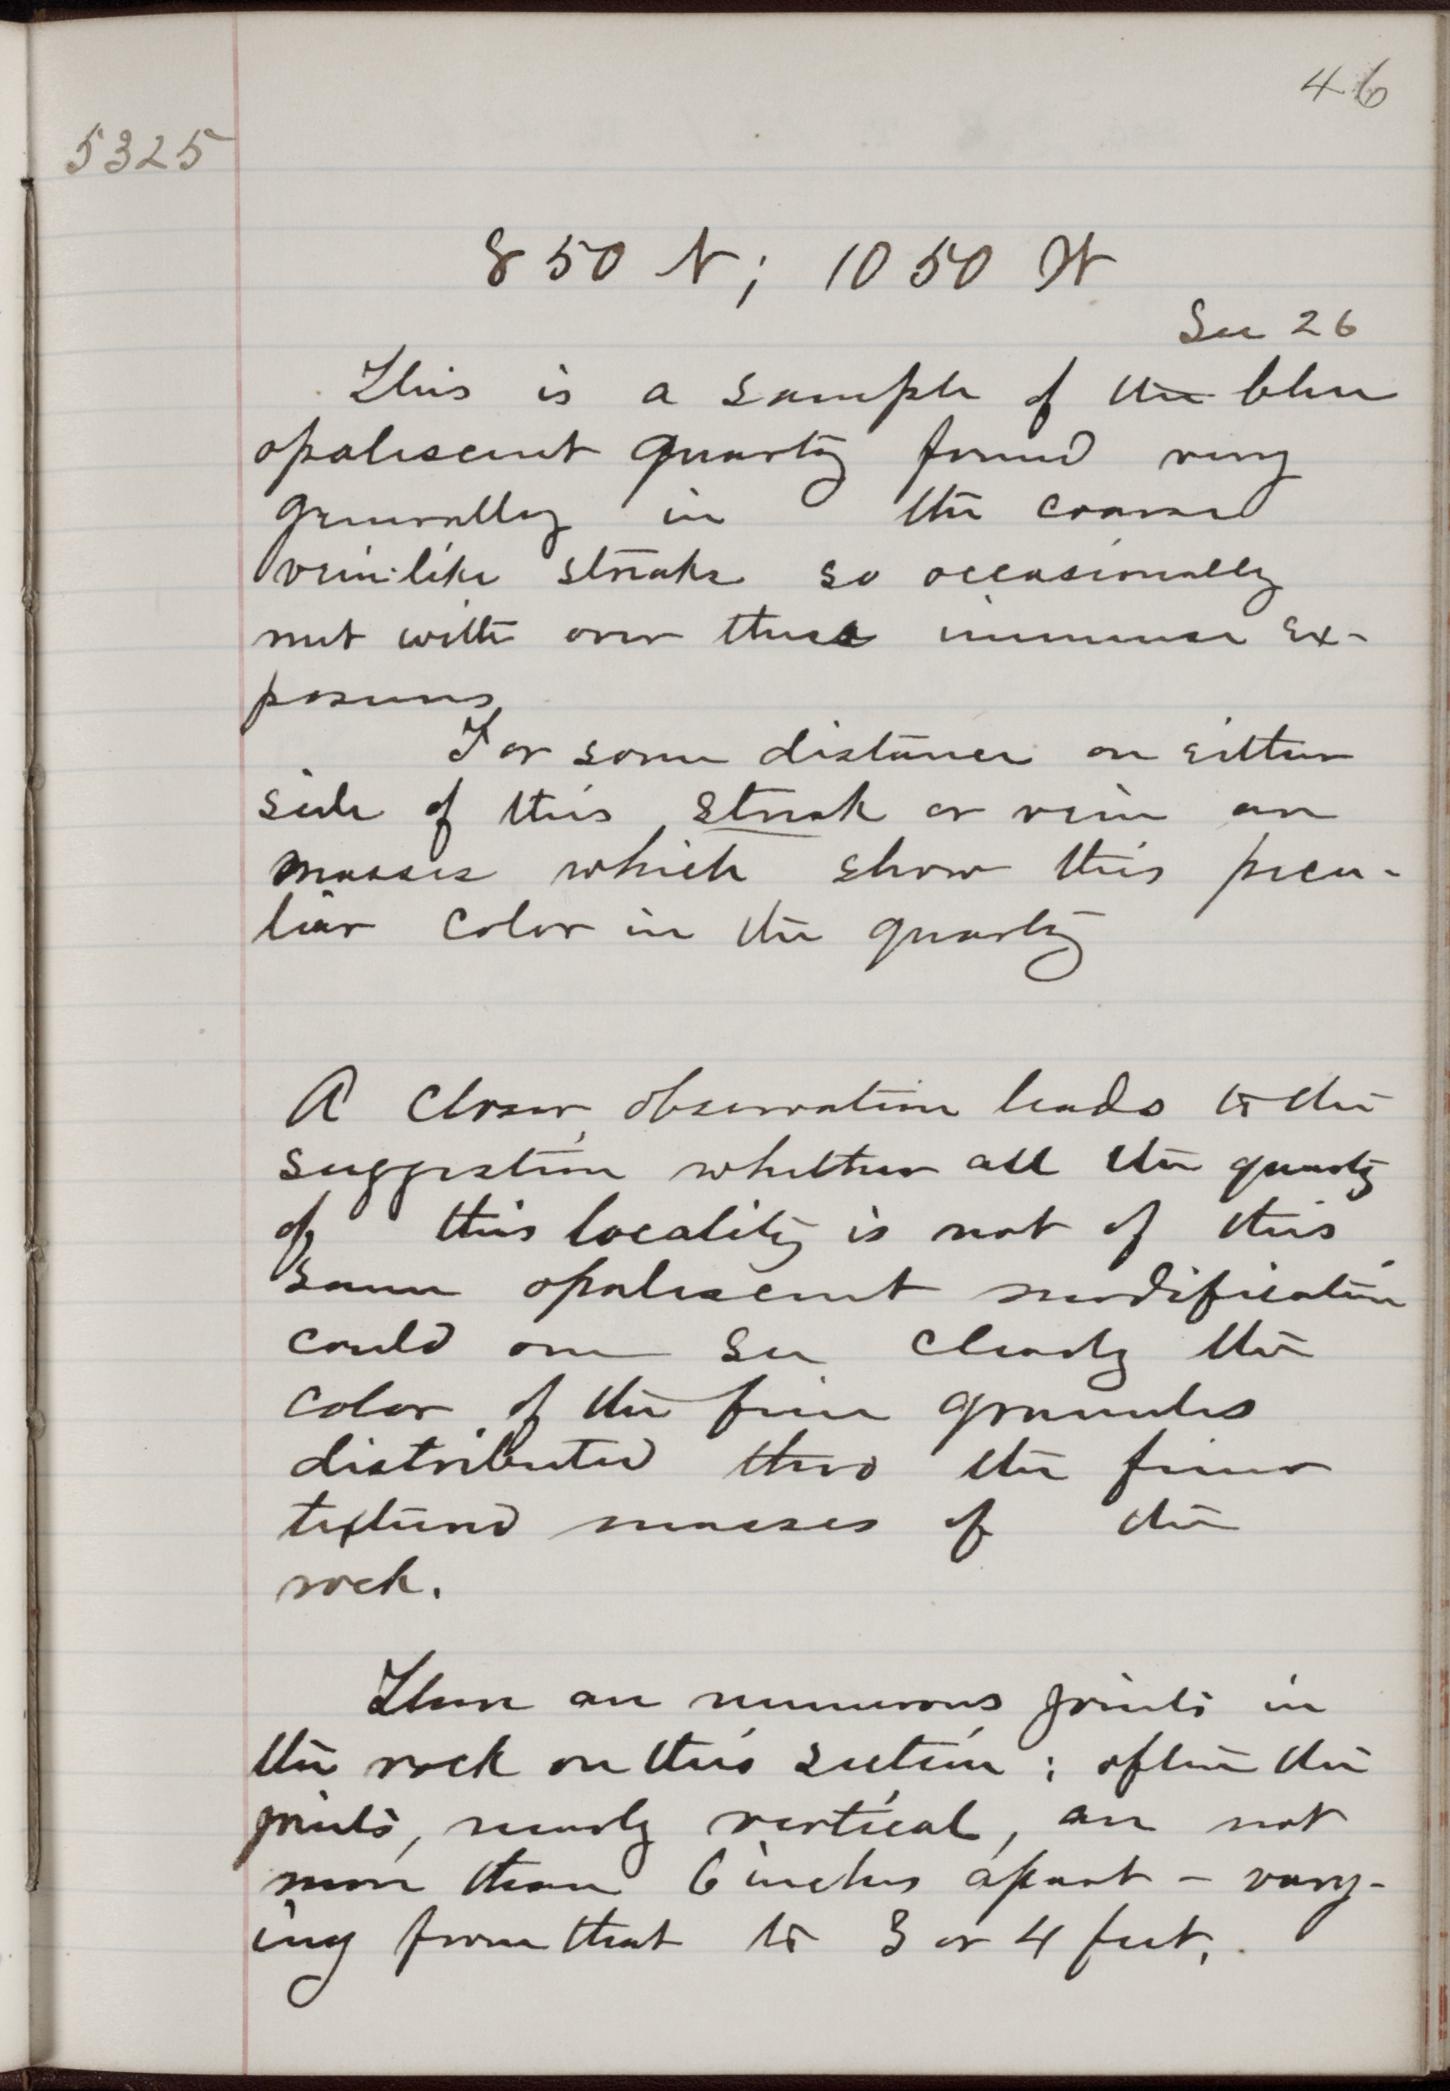 46
5325
850 N; 1050 W
Sec 26
This is a sample of the blue
opalescent quartz found very
generally in the coarse
vein-like streaks so occasionally
met with over these immense ex-
posures
For some distance on either
side of this streak or vein are
masses which show this pecu-
liar color in the quartz
A closer observation leads to the
suggestion whether all the quartz
of this locality is not of this
same opalescent modification
could one see clearly the
color of the fine granules
distributed thro the finer
textured masses of the
rock.
There are numerous joints in
the rock on this section; often the
joints, nearly vertical, are not
more than 6 inches apart - vary-
ing from that to 3 or 4 feet.